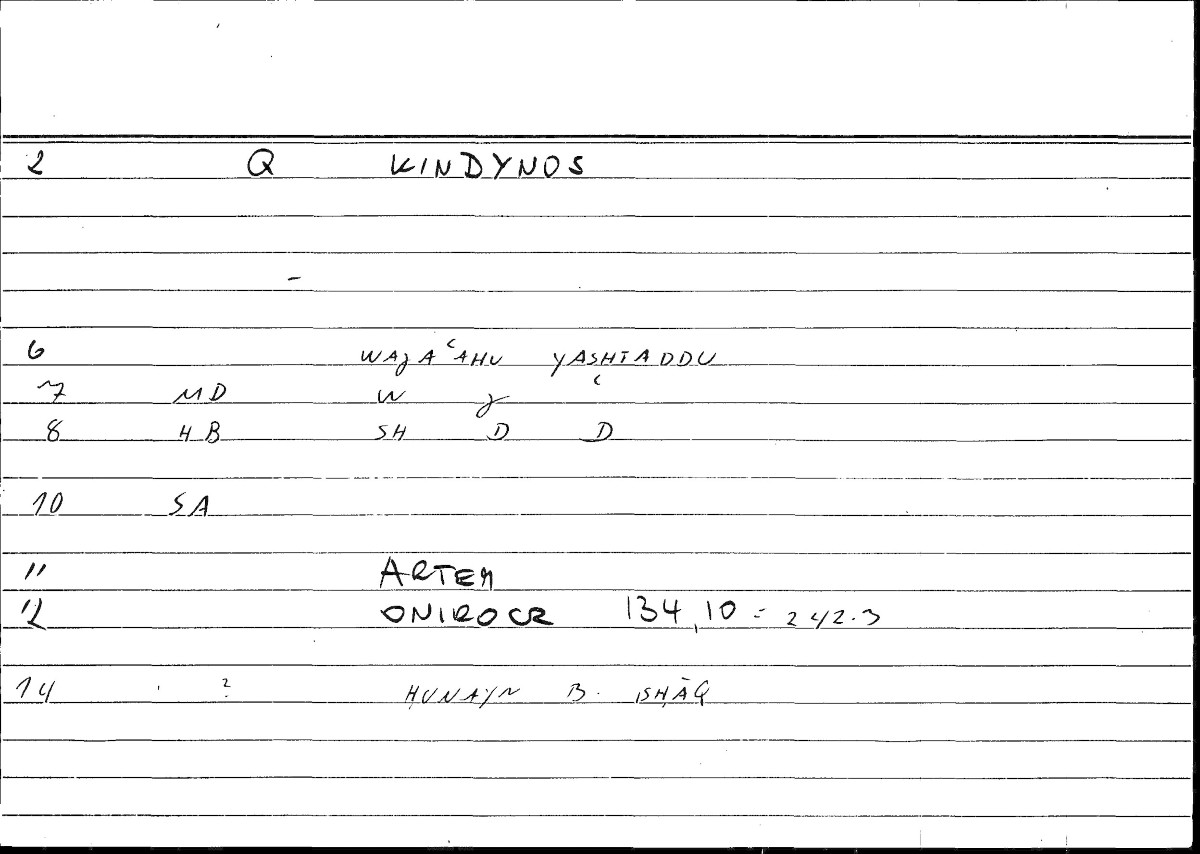 2 Q KINDYNOS
6 WAJAʿAHU YASHTADDU
7 MD W J ʿ
8 HB SH D D
10 SA
11 ARTEM
12 ONIROCR 134,10 = 242.3
14 ? ḤUNAYN B. ISḤĀQ